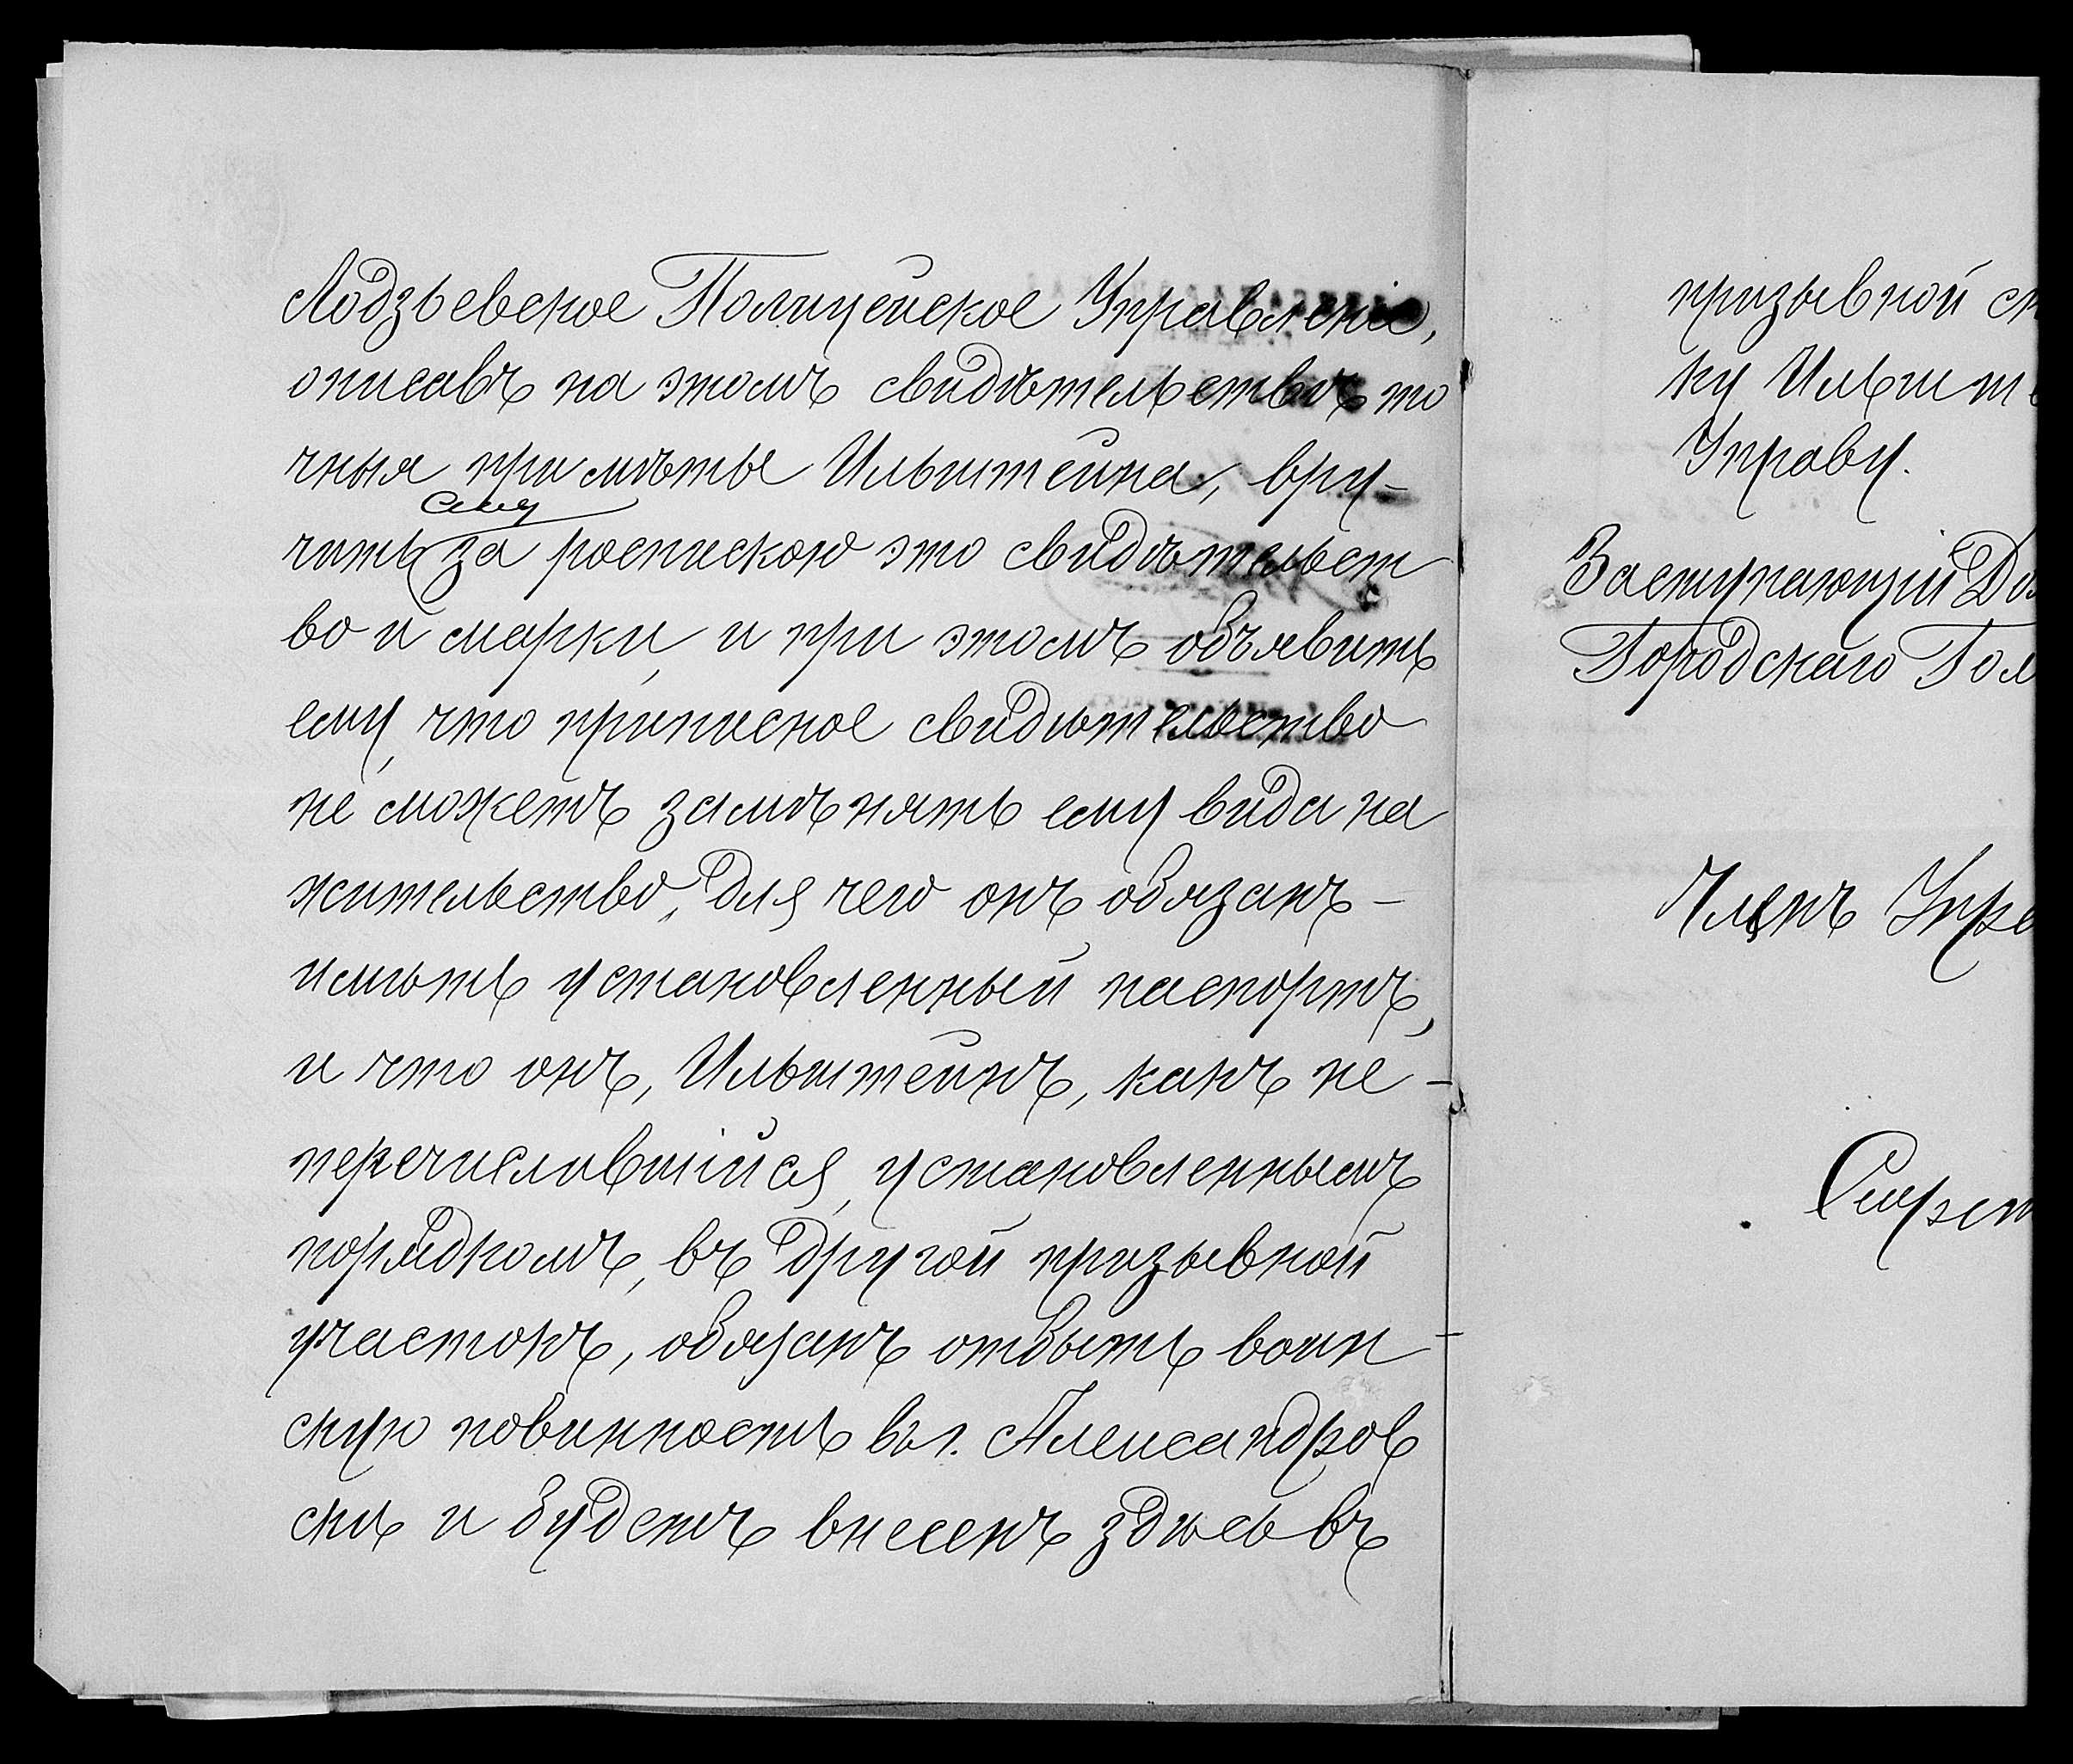 Лодзьевское Полицейское Управленіе,
описавъ на этомъ свидѣтельствѣ то
чныя примѣты Ильштейна, вру-
ему
чить за роспискою это свидѣтельст
во и марки, и при этомъ объявить
ему, что приписное свидѣтельство
не можетъ замѣнять ему вида на
жительство, для чего онъ обязанъ-
имѣть установленный паспортъ,
и что онъ, Ильштейнъ, какъ не-
перечислившійся, установленнымъ
порядкомъ, въ другой призывной
участокъ, обязанъ отбыть воин-
скую повинность въ г. Александров
скѣ и будетъ внесенъ здѣсь въ
призывной сп
ку Ильште
Управу.
Заступающій До
Городскаго Гол
Членъ Упра
Секрет